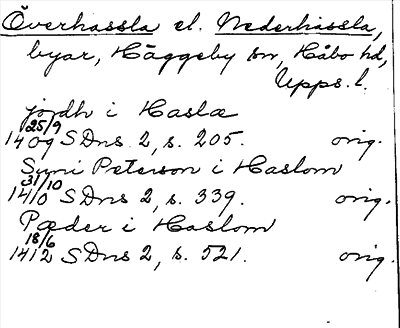 Överhassla el. Nederhassla,
byar, Häggeby sn, Håbo hd,
Upps. l.
jordh i Haslæ
25/9
1409 SDns 2, s. 205. orig.
Suni Peterson i Haslom
31/10
1410 SDns 2, s. 339. orig.
Pæder i Haslom
18/6
1412 SDns 2, s. 521. orig.